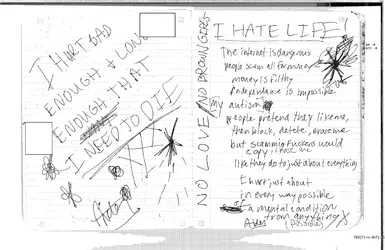 I HURT BAD
ENOUGH + LONG
ENOUGH THAT
I NEED TO DIE
NO LOVE/NO BROWN GIRLS
I HATE LIFE
The internet is dangerous
people scam all for more
money is filthy
Independance is impossible
My autism
people pretend they like me,
then block, delete,
but scamming fuckers would
copy
like they do to just about everything
I hurt just about
in every way possible
a mental condition
from anything
(possible)